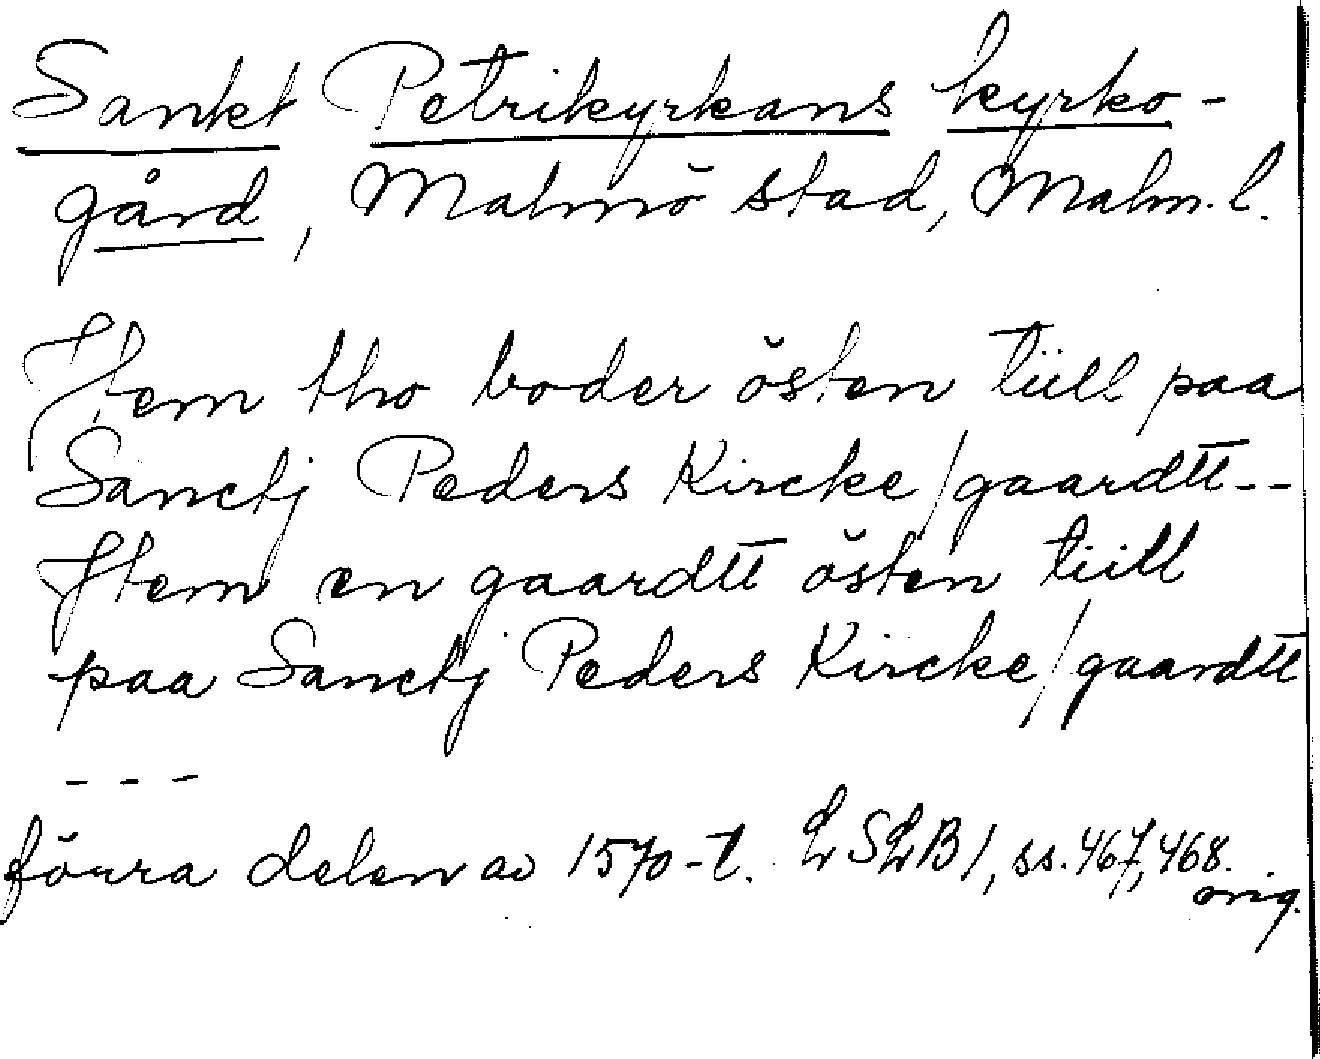 Sankt Petrikyrkans kyrko-
gård, Malmö stad, Malm. l.
Jtem tho boder östen tiill paa
Sanctj Peders Kircke/gaardtt--
Jtem en gaardtt östen tiill
paa Sanctj Peders Kircke/gaardtt
---
förra delen av 1570-t. LSLB1, ss. 467, 468.
orig.